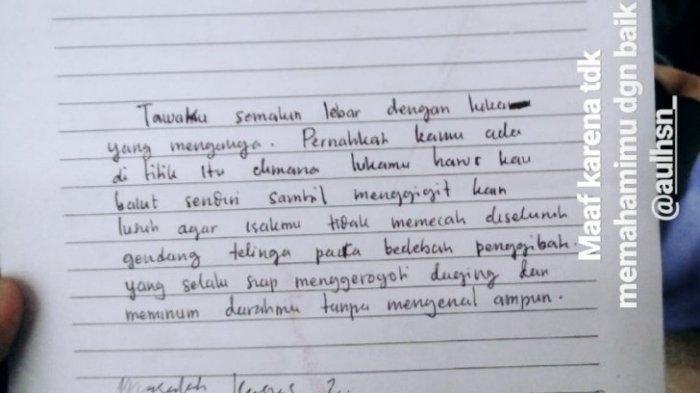 Tawaku semakin lebar dengan luka
yang menganga. Pernahkah kamu ada
di titik itu dimana lukamu harus kau
balut sendiri sambil menggigit kan
lusuh agar isakmu tidak memecah diseluruh
gendang telinga para bedebah penggibah.
yang selalu siap menggerogoti daging dan
meminum darahmu tanpa mengenal ampun.
Maaf karena tdk
memahamimu dgn baik
@aulhsn_